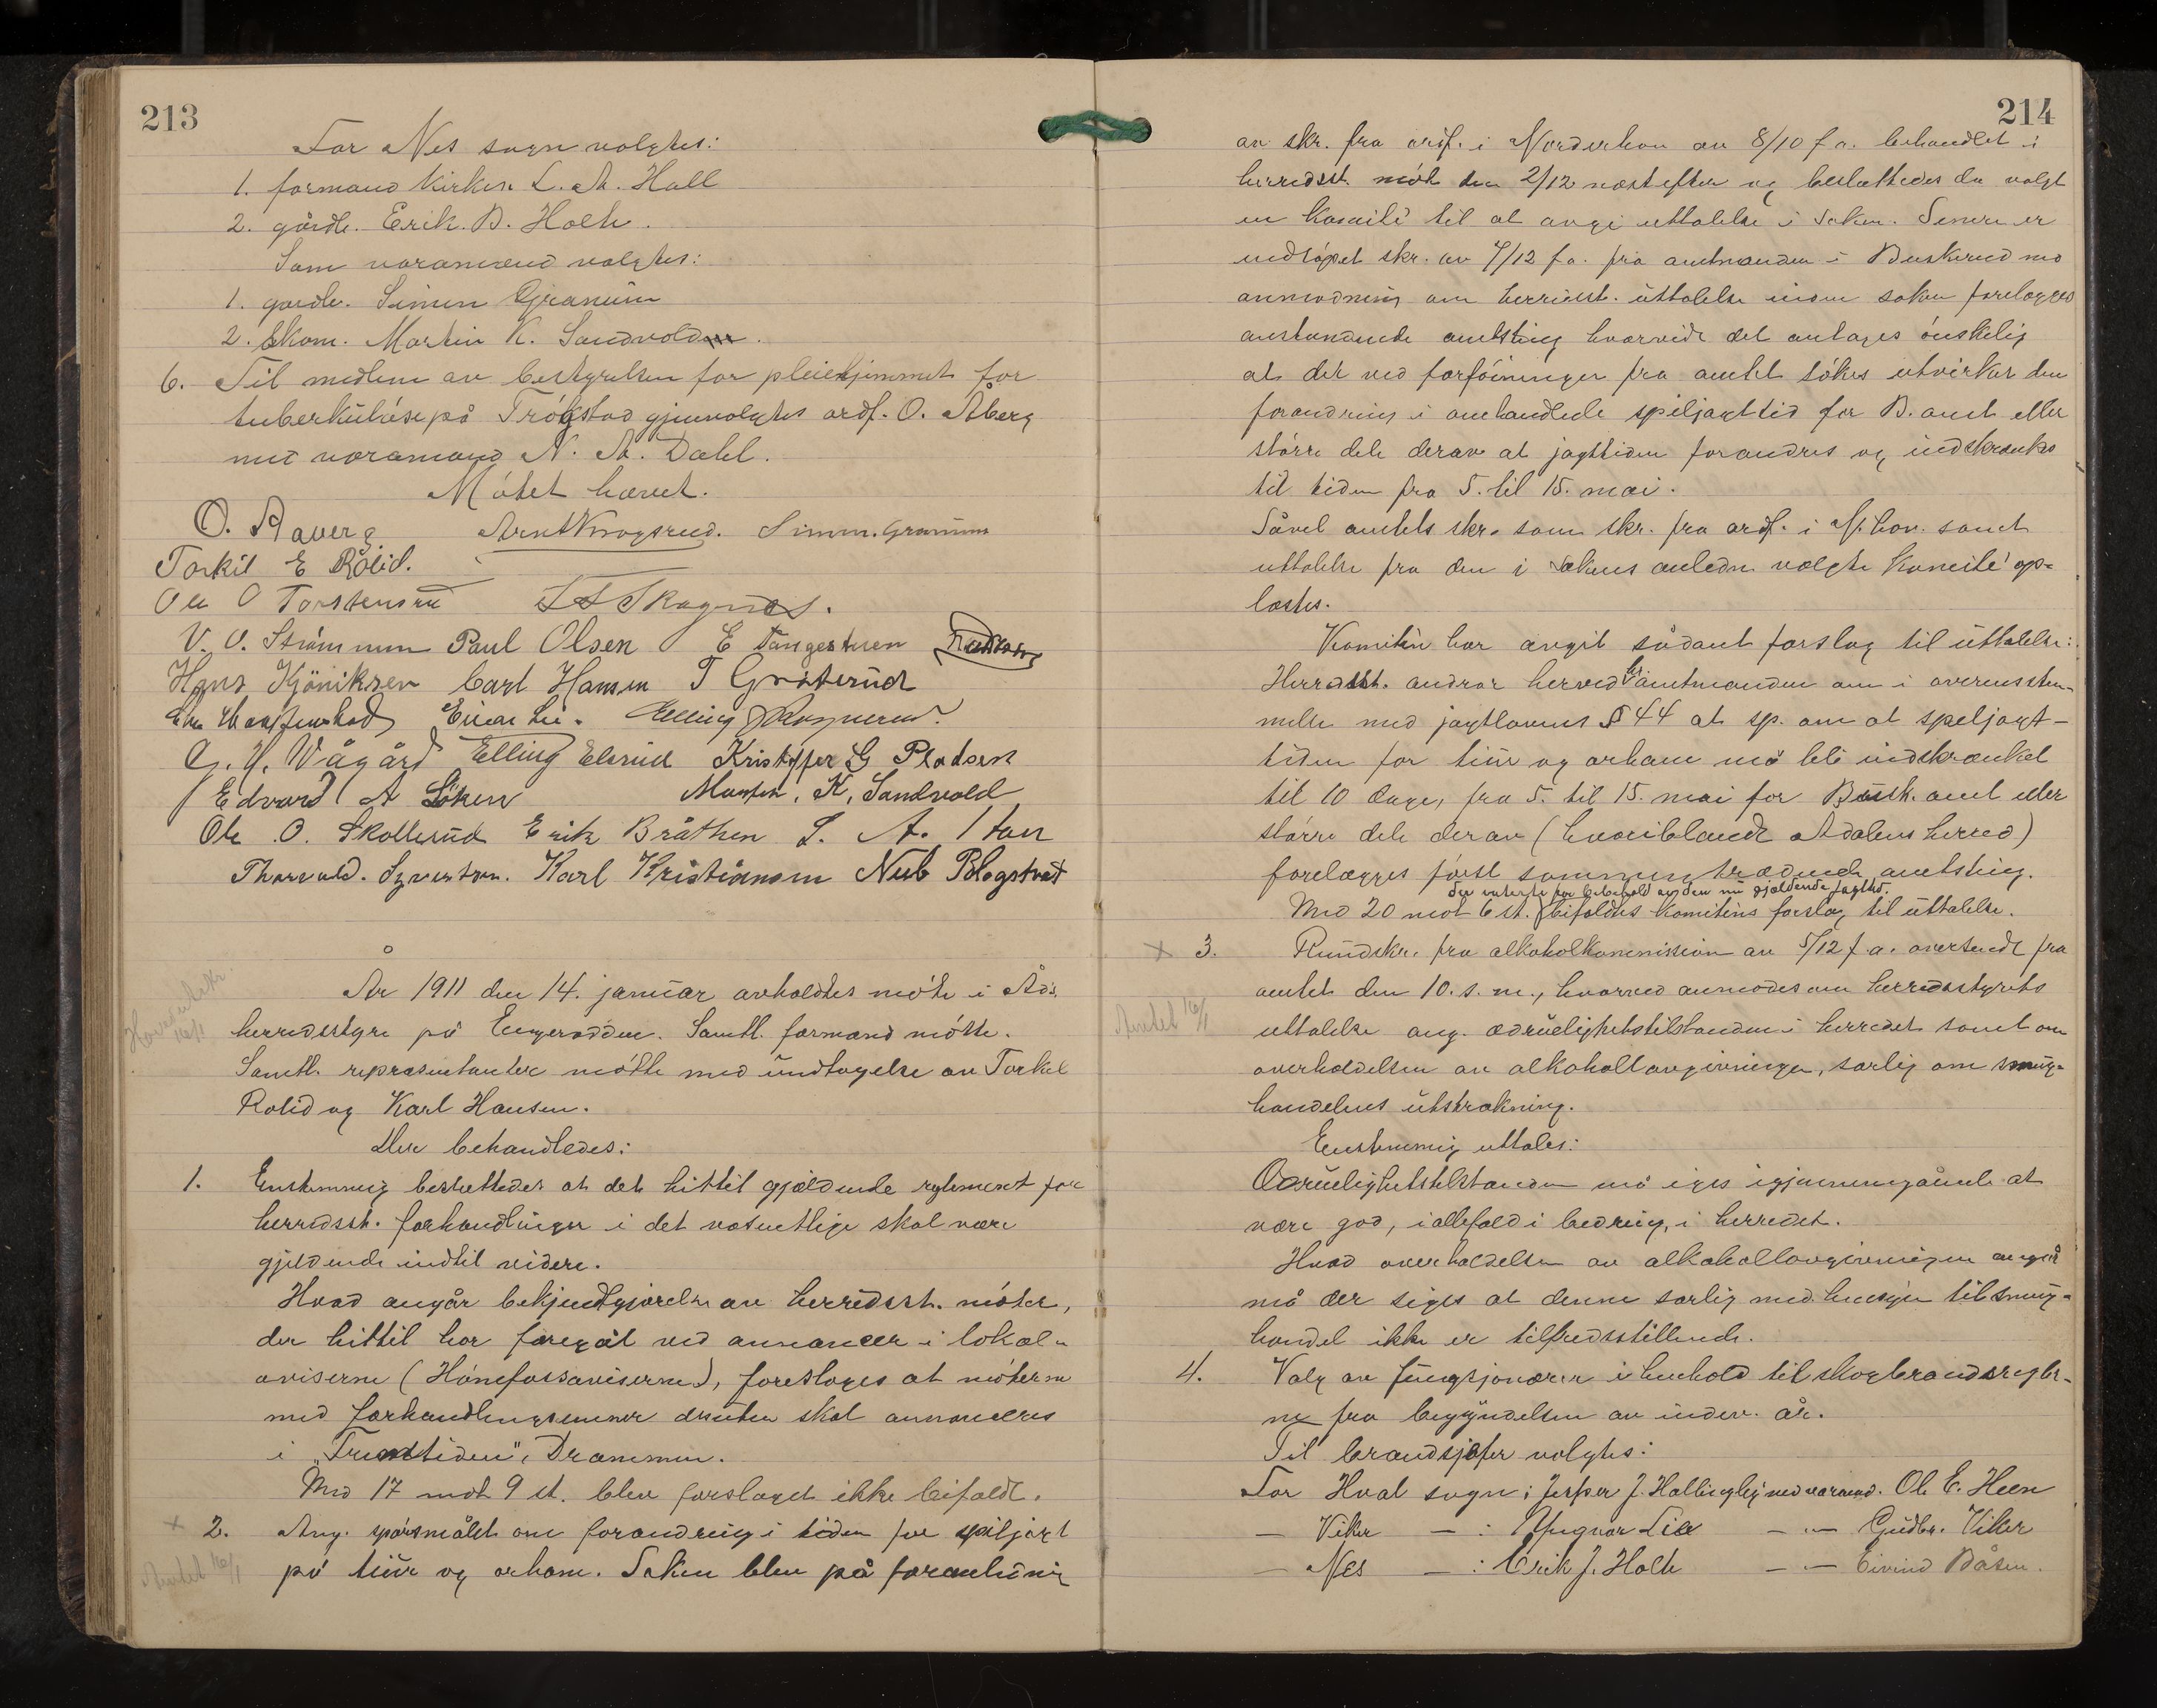 213
For Nes sogn valgtes:
1. formand kirkes. L. A. Hall
2. gårdb. Erik B. Holte.
Som varamænd valgtes:
1. gårdb. Simen Granum
2. Skom. Martin K. Sandvold.
6. Til medlem av bestyrelsen for pleiehjemmet for
tuberkuløse på Trøgstad gjenvalgtes ordf. O. Åberg
med varamand N. A. Dahl.
Møtet hævet.
O. Aaberg Arnt Krogsrud. Simen. Granum
Torkil E Rolid.
Ole O Torstensrud
V. O. Strømmen Paul Olsen E Tangestuen
Hans Kjöniksen Carl Hansen T Gräterud
Einar Lie. Elling
G. H. Vågård Elling Elsrud Kristoffer G Pladsen
Edvard A Löken Martin, K, Sandvold
Ole O. Skollerud Erik Bråthen L. A. Hall
Thorvald. Syvertsen. Karl Kristiansen Nub Blogstvedt
År 1911 den 14. januar avholdtes møte i Åds.
herredsstyre på Engerodden. Samtl. formænd møtte.
Samtl. repræsentanter møtte med undtagelse av Torkel
Rolid og Karl Hansen.
Der behandledes:
1. Enstemmig besluttedes at det hittil gjældende reglement for
herredsst. forhandlinger i det væsentlige skal være
gjeldende indtil videre.
Hvad angår bekjendtgjørelse av herredsst. møter,
der hittil har foregåt ved annoncer i lokal-
aviserne (Hønefossaviserne), foresloges at møterne
med forhandlingsemner desuten skal annonceres
i "Fremtiden", Drammen.
Med 17 mot 9 st. blev forslaget ikke bifaldt.
× 2. Ang. spørsmålet om forandring i tiden for spiljagt
Amtet 16/1
på tiur og orhane. Saken blev på foranledning
214
av skr. fra ordf. i Norderhov av 8/10 f.a. behandlet i
herredsst. møte den 2/12 næstefter og besluttedes da valgt
en komité til at avgi uttalelse i saken. Senere er
indløpet skr. av 7/12 f.a. fra amtmanden i Buskerud med
anmodning om herredsst. uttalelse inden saken forelægges
anstundende amtsting hvorvidt det antages ønskelig
at det ved forføininger fra amtet søkes utvirket den
forandring i omhandlede spiljagttid for B. amt eller
større dele derav at jagttiden forandres og indskrænkes
til tiden fra 5. til 15. mai.
Såvel amtets skr. som skr. fra ordf. i N.hov. samt
uttalelse fra den i sakens anledn. valgte komité op-
læstes.
Komiteen har avgit sådant forslag til uttalelse:
Herredsst. andrar herved for amtmanden om i overensstem-
melse med jagtlovens § 44 at sp. om at speljagt-
tiden for tiur og orhane må bli indskrænket
til 10 dage, fra 5. til 15. mai for Busk. amt eller
større dele derav (hvoriblandt Ådalens herred)
forelægges først sammentrædende amtsting.
der voterte for bibehold av den nu gjældende jagttid.
Med 20 mot 6 st. bifaldtes komiteens forslag til uttalelse.
× 3. Rundskr. fra alkoholkommission av 5/12 f.a. oversendt fra
amtet den 10. s. m., hvorved anmodes om herredsstyrets
Amtet 16/1
uttalelse ang. ædruelighetstilstanden i herredet samt om
overholdelsen av alkohollovgivningen, særlig om smug-
handelens utstrækning.
Enstemmig uttales:
Ædruelighetstilstanden må siges igjennemgående at
være god, iallefald i bedring, i herredet.
Hvad overholdelsen av alkohollovgivningen angår
må der siges at denne særlig med hensyn til smug-
handel ikke er tilfredsstillende.
4. Valg av fungsjonærer i henhold til skogbrandsregler-
ne fra begyndelsen av indev. år.
Til brandsjefer valgtes:
For Hval sogn: Jesper J. Hallingby med varamd. Ole E. Heen
— Viker — : Yngvar Lie — — Gudbr. Viker
— Nes — : Erik J. Holte — — Eivind Båsen.